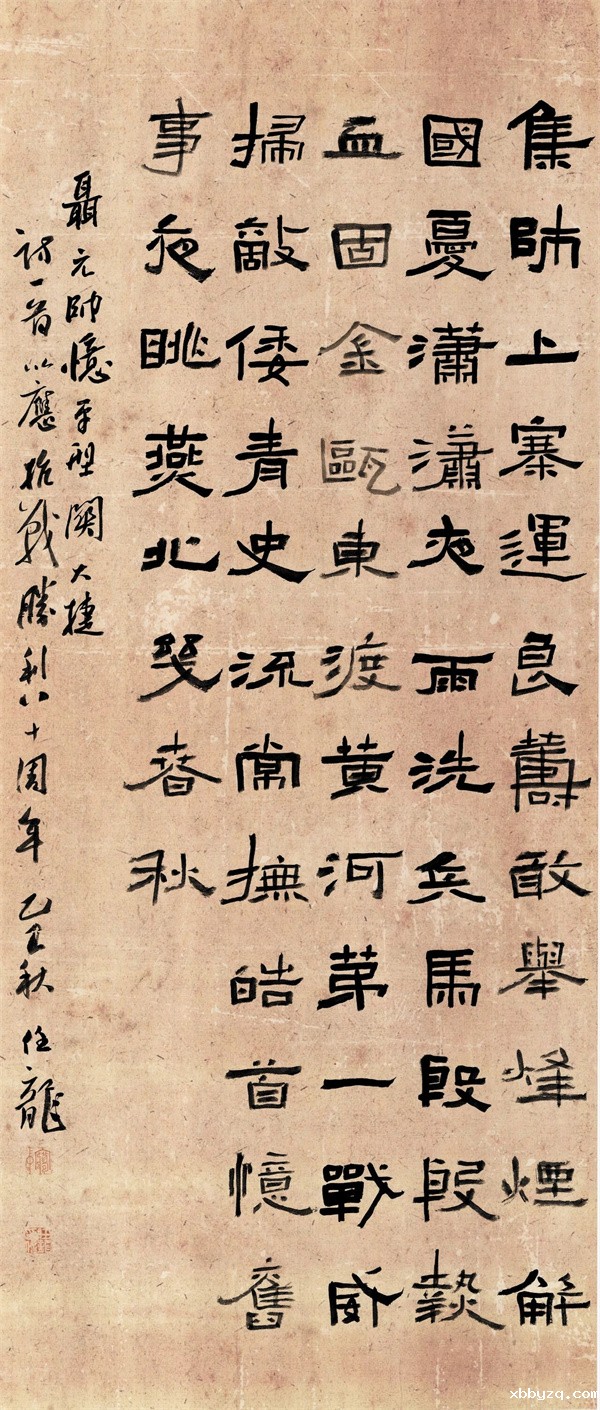 集師上寨運良籌敢舉烽煙解
國憂瀟瀟夜雨洗兵馬殷殷熱
血固金甌東渡黄河第一戰威
掃敵倭青史流常撫皓首憶舊
事夜眺燕北幾春秋
聶元帥憶平型關大捷
詩一首以應抗戰勝利八十周年 乙巳秋 任龍
xbbyzq.com